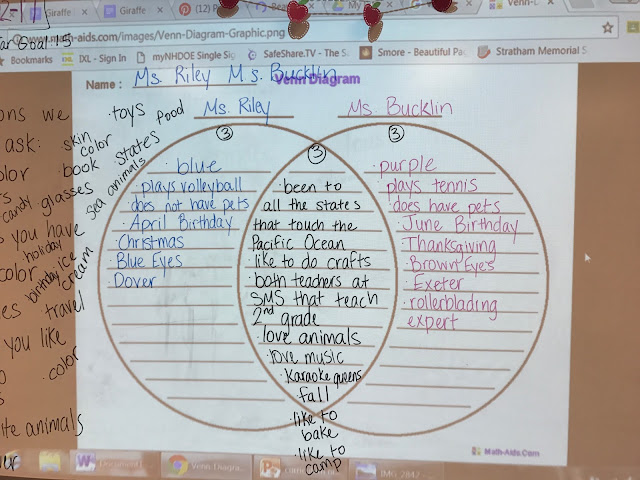 Giraffe
Giraffe
math-aids.com/images/Venn-Diagram-Graphic.png
Bookmarks DXL - Sign In myNHDOE Single Sign SafeShare.TV - The S Smore - Beautiful Pag Stratham Memorial S
Goal 15
Name : Ms. Riley Ms. Bucklin
Venn Diagram
ons we
ask:
color
candy
you have
holiday
color
birthday
travel
you like
color
animals
toys
food
skin color
book
states
glasses
sea animals
ice cream
Ms. Riley
Ms. Bucklin
3
3
3
· blue
· plays volleyball
· does not have pets
· April Birthday
· Christmas
· Blue Eyes
· Dover
· been to
all the states
that touch the
Pacific Ocean
· like to do crafts
both teachers at
SMS that teach
2nd grade
· love animals
· love music
· Karaoke queens
· fall
· like to
bake
· like to
camp
· purple
plays tennis
· does have pets
· June Birthday
· Thanksgiving
· Brown Eyes
· Exeter
· rollerblading
expert
Math-Aids.Com
Document1
Venn Diagra...
IMG 2847